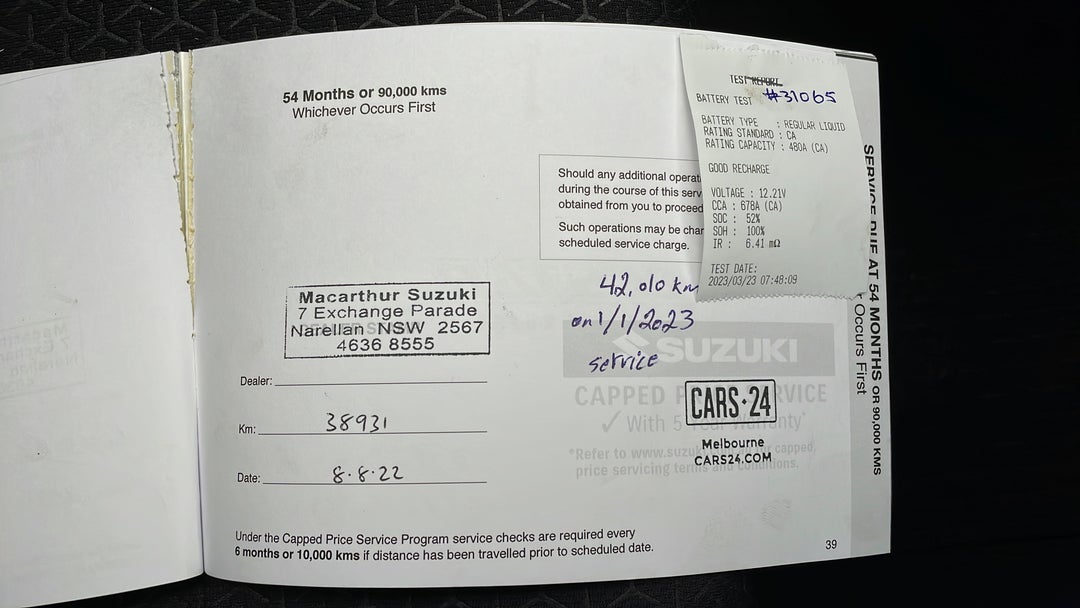 54 Months or 90,000 kms
Whichever Occurs First
TEST REPORT
BATTERY TEST #31065
BATTERY TYPE : REGULAR LIQUID
RATING STANDARD : CA
RATING CAPACITY : 480A (CA)
GOOD RECHARGE
VOLTAGE : 12.21V
CCA : 678A (CA)
SOC : 52%
SOH : 100%
IR : 6.41 mΩ
TEST DATE:
2023/03/23 07:48:09
Should any additional operat
during the course of this serv
obtained from you to proceed
Such operations may be char
scheduled service charge.
42,010 km
on 1/1/2023
service
Macarthur Suzuki
7 Exchange Parade
Narellan NSW 2567
4636 8555
Dealer:
Km: 38931
Date: 8.8.22
SUZUKI
CAPPED SERVICE
✓ With 5 Year Warranty*
*Refer to www.suzuki capped
price servicing terms and conditions.
CARS·24
Melbourne
CARS24.COM
Under the Capped Price Service Program service checks are required every
6 months or 10,000 kms if distance has been travelled prior to scheduled date.
39
SERVICE DUE AT 54 MONTHS OR 90,000 KMS
Occurs First